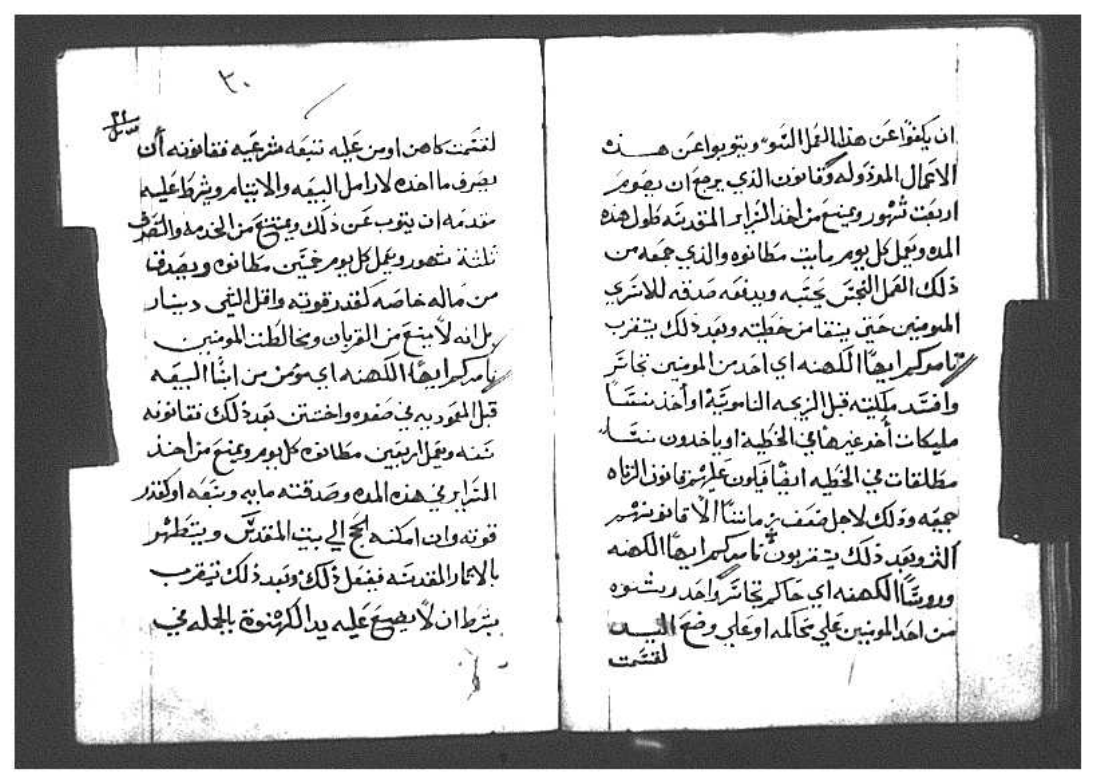 ان يكفوا عن هذا العمل السو ويتوبوا عن هذه
الاعمال المرذوله وقانون الذي يرجع ان يصوم
اربعت شهور ويمنع من اخذ السراير المقدسه طول هذه
المده ويعمل كل يوم مايت مطانوه والذي جمعه من
ذلك العمل النجس يحتبه ويدفعه صدقه للاسري
المومنين حتي ينقا من خطيته وبعد ذلك يتقرب
نامركم ايها الكهنه اي احد من المومنين تجاسر
وافسد مليكته قبل الزيجه الناموسية او أخذ نسا
مليكات أخر غيرها في الخطية او ياخدون نسا
مطلقات في الخطيه ايضا فيكون عليهم قانون الزناه
جميعه وذلك لاجل ضعف زماننا الا قانونهم
اكثر وبعد ذلك يتقربون نامركم ايها الكهنه
وروسا الكهنه اي حاكم تجاسر واخد رشوه
من احد المومنين علي محاكمه او علي وضع اليد
لقسمت
٣٠
لقسمت كاهن او من عليه تبعه شرعيه فقانونه أن
يصرف ما اخده لارامل البيعه والايتام ويشرط عليه
مقدمه ان يتوب عن ذلك ويمتنع من الخدمه والتصرف
ثلثة شهور ويعمل كل يوم خمسين مطانوه ويصدق
من ماله خاصه كقدر قوته واقل الشي دينار
بل انه لا يمنع من القربان ومخالطت المومنين
نامركم ايها الكهنه اي مومن من ابنا البيعه
قبل المعموديه في صغره واختتن بعد ذلك فقانونه
سنه ويعمل اربعين مطانوه كل يوم ويمنع من اخذ
السراير في هذه المده وصدقته مايه وسبعه او كقدر
قوته وان امكنه الحج الي بيت المقدس ويتطهر
بالاثار المقدسه فيفعل ذلك وبعد ذلك يتقرب
بشرط ان لا يضع عليه يد الكهنوة بالجمله في